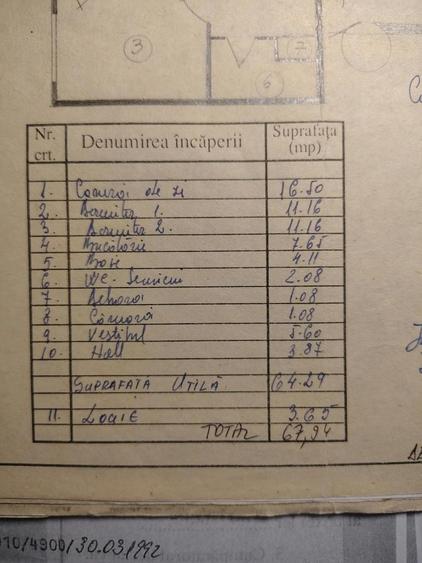 3
7
6
Nr. crt. Denumirea încăperii Suprafața (mp)
1. Cameră de zi 16.50
2. Dormitor 1. 11.16
3. Dormitor 2. 11.16
4. Bucătărie 7.65
5. Baie 4.11
6. WC. Serviciu 2.08
7. Debara 1.08
8. Cămară 1.08
9. Vestibul 5.60
10. Hall 3.87
SUPRAFAȚA UTILĂ 64.29
11. LOGIE 3.65
TOTAL 67,94
010/4900/30.03.1992